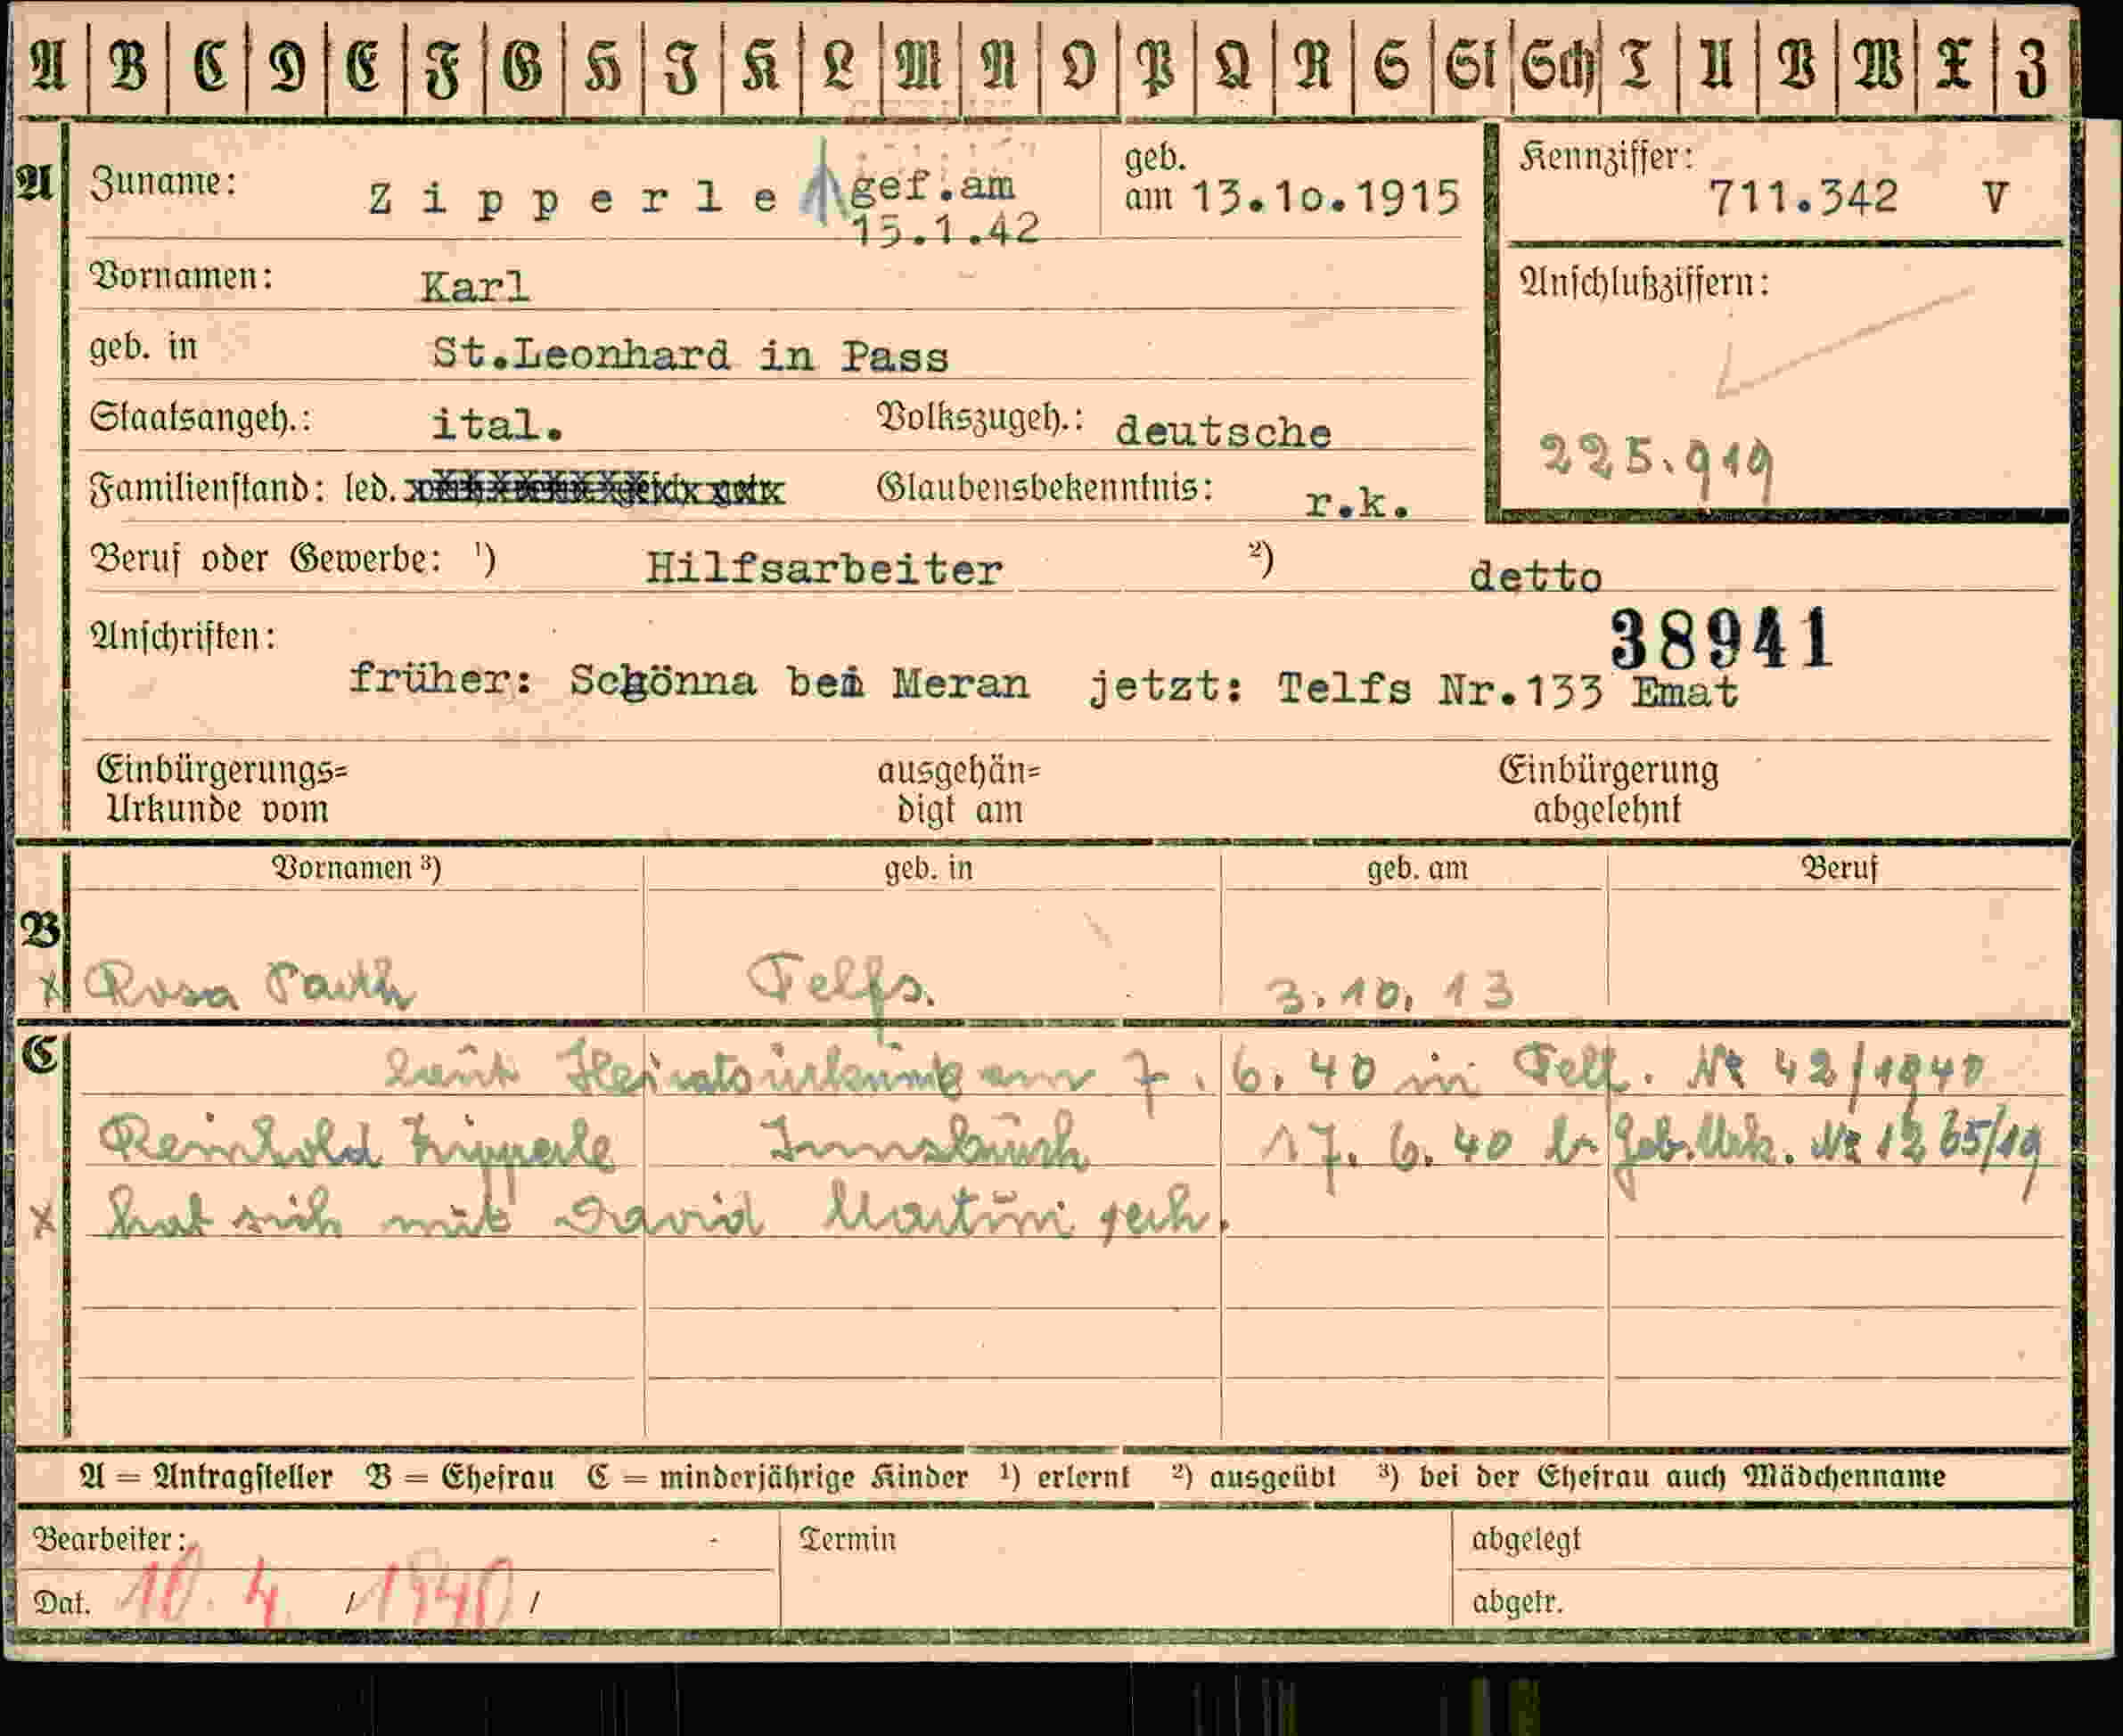 A B C D E F G H I K L M N O P Q R S St Sch T U V W X Z
A Zuname: Zipperle gef.am 15.1.42 geb. am 13.10.1915
Kennziffer: 711.342 V
Vornamen: Karl
Anschlußziffern:
geb. in St.Leonhard in Pass
Staatsangeh.: ital. Volkszugeh.: deutsche
225.919
Familienstand: led. Glaubensbekenntnis: r.k.
Beruf oder Gewerbe: ¹) Hilfsarbeiter ²) detto
38941
Anschriften:
früher: Schönna bei Meran jetzt: Telfs Nr.133 Emat
Einbürgerungs= ausgehän= Einbürgerung
Urkunde vom digt am abgelehnt
Vornamen ³) geb. in geb. am Beruf
B
x Rosa Telfs. 3.10.13
C
Laut Heiratsurkunde am 7.6.40 in Telf. Nr 42/1940
Reinhold Zipperle Innsbruck 17.6.40 lr Geb.Urk. Nr 1265/19
x hat sich mit David Martin
A = Antragsteller B = Ehefrau C = minderjährige Kinder ¹) erlernt ²) ausgeübt ³) bei der Ehefrau auch Mädchenname
Bearbeiter: Termin abgelegt
Dat. 10.4. / 1940 / abgetr.